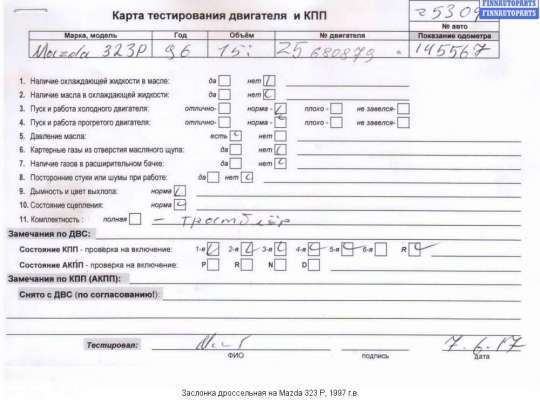 FINNAUTOPARTS
FINNAUTOPARTS
Карта тестирования двигателя и КПП
25309
№ авто
Марка, модель Год Объём № двигателя Показание одометра
Mazda 323P 96 1.5i 25 680879 145567
1. Наличие охлаждающей жидкости в масле: да нет
2. Наличие масла в охлаждающей жидкости: да нет
3. Пуск и работа холодного двигателя: отлично- норма- плохо - не завелся-
4. Пуск и работа прогретого двигателя: отлично- норма - плохо - не завелся-
5. Давление масла: есть нет
6. Картерные газы из отверстия масляного щупа: да нет
7. Наличие газов в расширительном бачке: да нет
8. Посторонние стуки или шумы при работе: да нет
9. Дымность и цвет выхлопа: норма
10. Состояние сцепления: норма
11. Комплектность : полная – трамблёр
Замечания по ДВС:
Состояние КПП - проверка на включение: 1-я 2-я 3-я 4-я 5-я 6-я R
Состояние АКПП - проверка на включение: P R N D
Замечания по КПП (АКПП):
Снято с ДВС (по согласованию!):
Тестировал: 7.6.17
ФИО подпись дата
Заслонка дроссельная на Mazda 323 P, 1997 г.в.